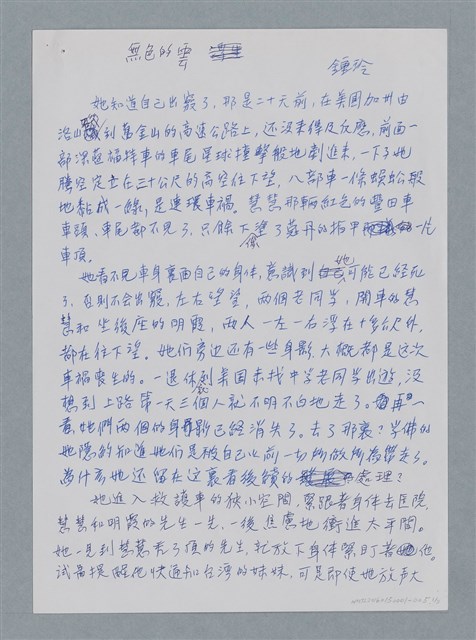 無色的雲
鍾玲
她知道自己出竅了,那是二十天前,在美國加州由
洛山到舊金山的高速公路上,還沒來得及反應,前面一
部深藍福特車的車尾星球撞擊般地刺進來,一下子她
騰空定立在三十公尺的高空往下望,八部車一條蜈蚣般
地黏成一線,是連環車禍。慧慧那輛紅色的豐田車
車頭、車尾都不見了,只餘下像塗了蔻丹的指甲一片
車頂。
她看不見車身裏面自己的身体,意識到她可能已經死
了,否則不会出竅,左右望望,兩個老同学,開車的慧
慧和坐後座的明霞,兩人一左一右浮在十多公尺外,
都在往下望。她們旁边还有一些身影,大概都是这次
車禍喪生的。一退休就到美国来找中学老同学出遊,沒
想到上路第一天三個人就不明不白地走了。再一
看她們兩個的身影已經消失了。去了那裏?学佛的
她隱約知道她們是被自己以前一切所做所為帶走了。
為什么她还留在这裏看後續的處理?
她進入救護車的狹小空間,緊跟着身体去医院,
慧慧和明霞的先生一先、一後焦慮地衝進太平間。
她一見到慧慧禿了頂的先生,就放下身体緊盯著他。
試着提醒他快通知台湾的妹妹,可是即使她放声大